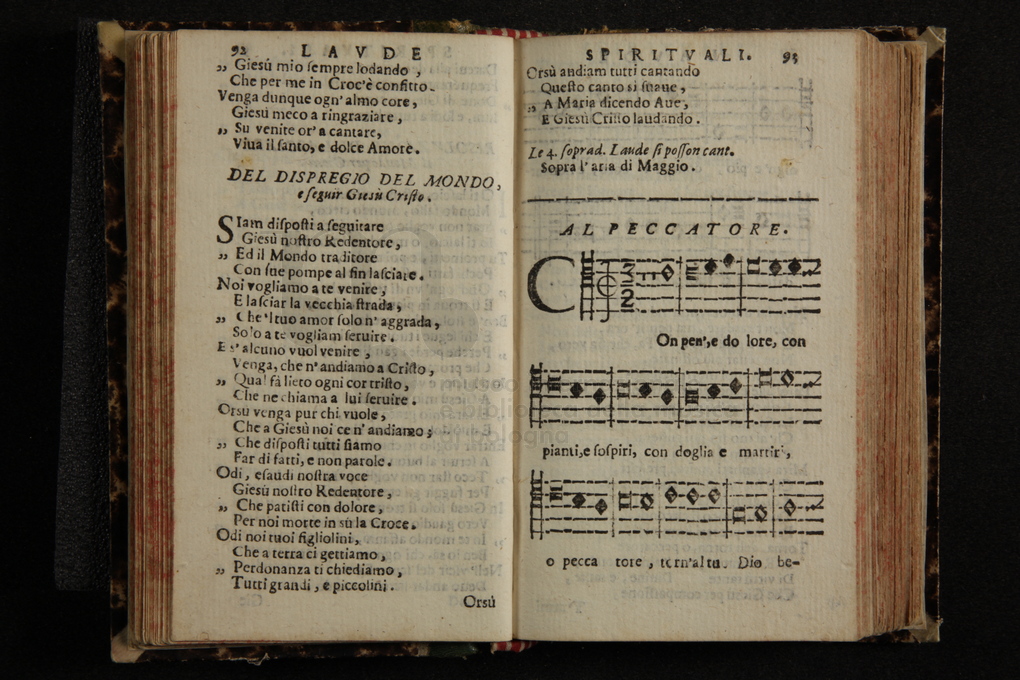 92 LAVDE
„ Giesù mio ſempre lodando ,
Che per me in Croc'è confitto.
Venga dunque ogn' almo core,
Giesù meco a ringraziare,
„ Su venite or' a cantare,
Viua il ſanto, e dolce Amore.
DEL DISPREGIO DEL MONDO,
e ſeguir Giesù Criſto.
SIam diſpoſti a ſeguitare
Giesù noſtro Redentore,
„ Ed il Mondo traditore
Con ſue pompe al fin laſciare.
Noi vogliamo a te venire,
E laſciar la vecchia ſtrada,
„ Che 'l tuo amor ſolo n' aggrada,
Solo a te vogliam ſeruire.
E s' alcuno vuol venire ,
Venga, che n' andiamo a Criſto,
„ Qual fà lieto ogni cor triſto,
Che ne chiama a lui ſeruire.
Orsù venga pur chi vuole,
Che a Giesù noi ce n' andiamo;
„ Che diſpoſti tutti ſiamo
Far di fatti, e non parole.
Odi, eſaudi noſtra voce
Giesù noſtro Redentore,
„ Che patiſti con dolore,
Per noi morte in sù la Croce.
Odi noi tuoi figliolini,
Che a terra ci gettiamo,
„ Perdonanza ti chiediamo,
Tutti grandi, e piccolini.
Orsù
SPIRITVALI. 93
Orsù andiam tutti cantando
Queſto canto sì ſuaue,
„ A Maria dicendo Aue,
E Giesù Criſto laudando.
Le 4. ſoprad. Laude ſi poſſon cant.
Sopra l' aria di Maggio.
AL PECCATORE.
C
On pen',e do lore, con
pianti,e ſoſpiri, con doglia e martiri,
o pecca tore , torn'al tu. Dio be-